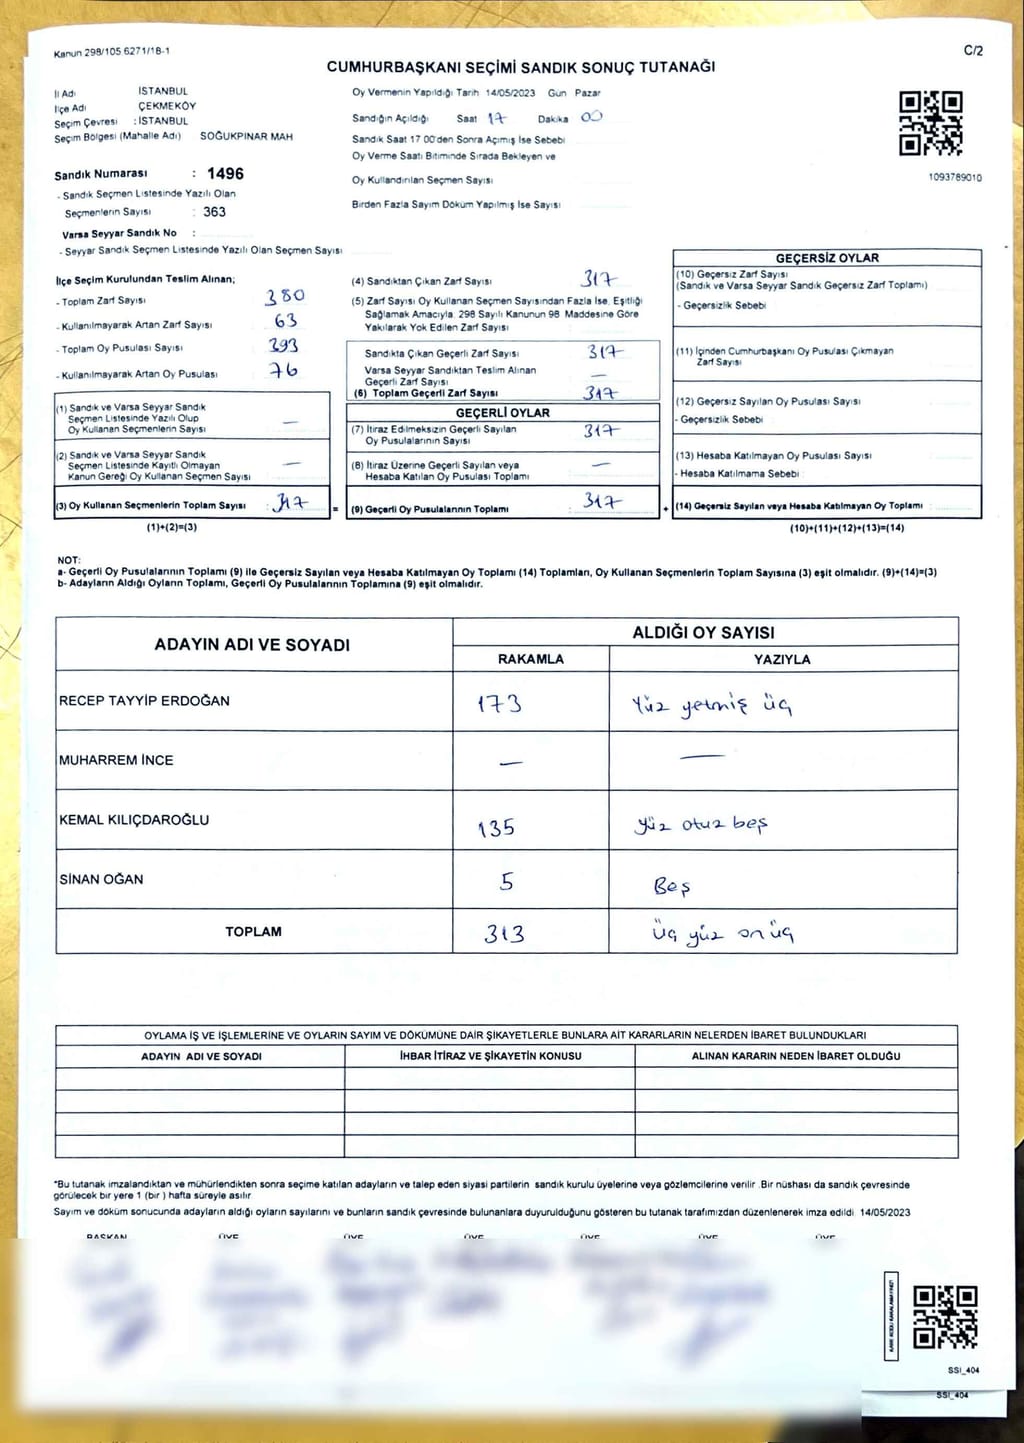 Kanun 298/105 6271/18-1
C/2
CUMHURBAŞKANI SEÇİMİ SANDIK SONUÇ TUTANAĞI
İl Adı İSTANBUL
İlçe Adı ÇEKMEKÖY
Seçim Çevresi : İSTANBUL
Seçim Bölgesi (Mahalle Adı) SOĞUKPINAR MAH
Sandık Numarası : 1496
- Sandık Seçmen Listesinde Yazılı Olan
Seçmenlerin Sayısı : 363
Varsa Seyyar Sandık No :
- Seyyar Sandık Seçmen Listesinde Yazılı Olan Seçmen Sayısı
Oy Vermenin Yapıldığı Tarih 14/05/2023 Gün Pazar
Sandığın Açıldığı Saat 17 Dakika 00
Sandık Saat 17 00'den Sonra Açılmış İse Sebebi
Oy Verme Saati Bitiminde Sırada Bekleyen ve
Oy Kullandırılan Seçmen Sayısı
Birden Fazla Sayım Döküm Yapılmış İse Sayısı
1093789010
İlçe Seçim Kurulundan Teslim Alınan;
- Toplam Zarf Sayısı 380
- Kullanılmayarak Artan Zarf Sayısı 63
- Toplam Oy Pusulası Sayısı 393
- Kullanılmayarak Artan Oy Pusulası 76
(1) Sandık ve Varsa Seyyar Sandık
Seçmen Listesinde Yazılı Olup
Oy Kullanan Seçmenlerin Sayısı —
(2) Sandık ve Varsa Seyyar Sandık
Seçmen Listesinde Kayıtlı Olmayan
Kanun Gereği Oy Kullanan Seçmen Sayısı —
(3) Oy Kullanan Seçmenlerin Toplam Sayısı : 317 =
(1)+(2)=(3)
(4) Sandıktan Çıkan Zarf Sayısı 317
(5) Zarf Sayısı Oy Kullanan Seçmen Sayısından Fazla İse, Eşitliği
Sağlamak Amacıyla, 298 Sayılı Kanunun 98 Maddesine Göre
Yakılarak Yok Edilen Zarf Sayısı
Sandıkta Çıkan Geçerli Zarf Sayısı 317
Varsa Seyyar Sandıktan Teslim Alınan
Geçerli Zarf Sayısı —
(6) Toplam Geçerli Zarf Sayısı 317
GEÇERLİ OYLAR
(7) İtiraz Edilmeksizin Geçerli Sayılan
Oy Pusulalarının Sayısı 317
(8) İtiraz Üzerine Geçerli Sayılan veya
Hesaba Katılan Oy Pusulası Toplamı —
(9) Geçerli Oy Pusulalarının Toplamı : 317 +
GEÇERSİZ OYLAR
(10) Geçersiz Zarf Sayısı
(Sandık ve Varsa Seyyar Sandık Geçersiz Zarf Toplamı)
- Geçersizlik Sebebi
(11) İçinden Cumhurbaşkanı Oy Pusulası Çıkmayan
Zarf Sayısı
(12) Geçersiz Sayılan Oy Pusulası Sayısı
- Geçersizlik Sebebi
(13) Hesaba Katılmayan Oy Pusulası Sayısı
- Hesaba Katılmama Sebebi
(14) Geçersiz Sayılan veya Hesaba Katılmayan Oy Toplamı :
(10)+(11)+(12)+(13)=(14)
NOT:
a- Geçerli Oy Pusulalarının Toplamı (9) ile Geçersiz Sayılan veya Hesaba Katılmayan Oy Toplamı (14) Toplamları, Oy Kullanan Seçmenlerin Toplam Sayısına (3) eşit olmalıdır. (9)+(14)=(3)
b- Adayların Aldığı Oyların Toplamı, Geçerli Oy Pusulalarının Toplamına (9) eşit olmalıdır.
ADAYIN ADI VE SOYADI ALDIĞI OY SAYISI
RAKAMLA YAZIYLA
RECEP TAYYİP ERDOĞAN 173 Yüz yetmiş üç
MUHARREM İNCE — —
KEMAL KILIÇDAROĞLU 135 yüz otuz beş
SİNAN OĞAN 5 Beş
TOPLAM 313 üç yüz on üç
OYLAMA İŞ VE İŞLEMLERİNE VE OYLARIN SAYIM VE DÖKÜMÜNE DAİR ŞİKAYETLERLE BUNLARA AİT KARARLARIN NELERDEN İBARET BULUNDUKLARI
ADAYIN ADI VE SOYADI İHBAR İTİRAZ VE ŞİKAYETİN KONUSU ALINAN KARARIN NEDEN İBARET OLDUĞU
*Bu tutanak imzalandıktan ve mühürlendikten sonra seçime katılan adayların ve talep eden siyasi partilerin sandık kurulu üyelerine veya gözlemcilerine verilir .Bir nüshası da sandık çevresinde
görülecek bir yere 1 (bir ) hafta süreyle asılır
Sayım ve döküm sonucunda adayların aldığı oyların sayılarını ve bunların sandık çevresinde bulunanlara duyurulduğunu gösteren bu tutanak tarafımızdan düzenlenerek imza edildi 14/05/2023
BAŞKAN ÜYE ÜYE ÜYE ÜYE ÜYE ÜYE
SSI_404
SSI_404